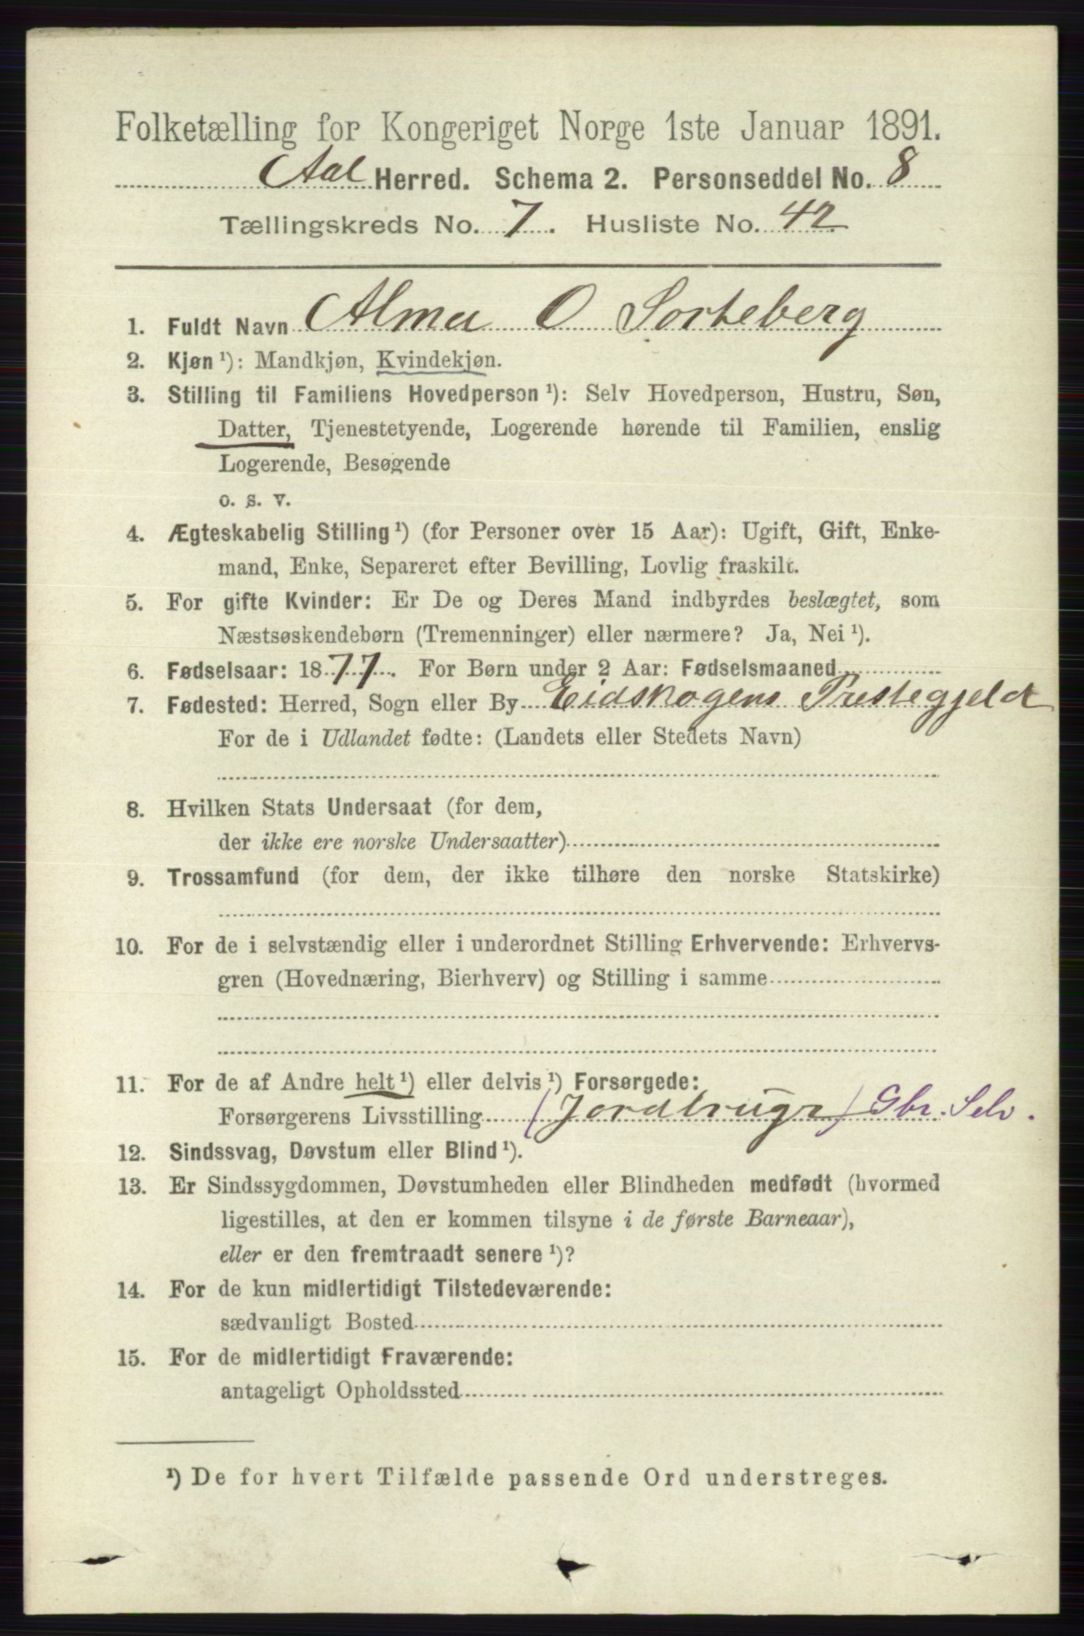 Folketælling for Kongeriget Norge 1ste Januar 1891.
Aal Herred. Schema 2. Personseddel No. 8
Tællingskreds No. 7. Husliste No. 42
1. Fuldt Navn Alma O Sorteberg
2. Kjøn ¹): Mandkjøn, Kvindekjøn.
3. Stilling til Familiens Hovedperson ¹): Selv Hovedperson, Hustru, Søn,
Datter, Tjenestetyende, Logerende hørende til Familien, enslig
Logerende, Besøgende
o. s. v.
4. Ægteskabelig Stilling ¹) (for Personer over 15 Aar): Ugift, Gift, Enke-
mand, Enke, Separeret efter Bevilling, Lovlig fraskilt.
5. For gifte Kvinder: Er De og Deres Mand indbyrdes beslægtet, som
Næstsøskendebørn (Tremenninger) eller nærmere? Ja, Nei ¹).
6. Fødselsaar: 1877. For Børn under 2 Aar: Fødselsmaaned
7. Fødested: Herred, Sogn eller By Eidskogens Prestegjeld
For de i Udlandet fødte: (Landets eller Stedets Navn)
8. Hvilken Stats Undersaat (for dem,
der ikke ere norske Undersaatter)
9. Trossamfund (for dem, der ikke tilhøre den norske Statskirke)
10. For de i selvstændig eller i underordnet Stilling Erhvervende: Erhvervs-
gren (Hovednæring, Bierhverv) og Stilling i samme
11. For de af Andre helt ¹) eller delvis ¹) Forsørgede:
Forsørgerens Livsstilling (Jordbrugr) Gbr. Selv.
12. Sindssvag, Døvstum eller Blind ¹).
13. Er Sindssygdommen, Døvstumheden eller Blindheden medfødt (hvormed
ligestilles, at den er kommen tilsyne i de første Barneaar),
eller er den fremtraadt senere ¹)?
14. For de kun midlertidigt Tilstedeværende:
sædvanligt Bosted
15. For de midlertidigt Fraværende:
antageligt Opholdssted
¹) De for hvert Tilfælde passende Ord understreges.